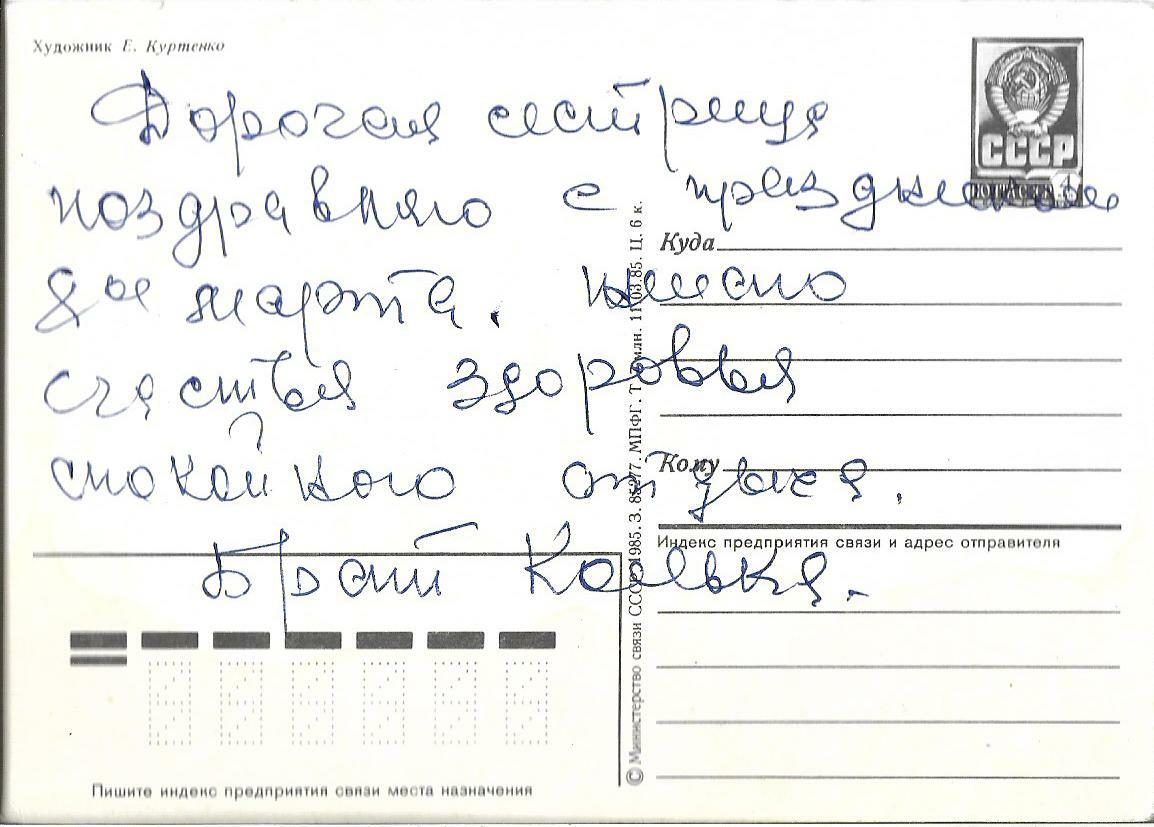 Художник Е. Куртенко
СССР
Дорогая сестрица
поздравляю с праздником
8ое марта. желаю
счастья здоровья
спокойного отдыха.
Брат Колька.
Куда
Кому
Индекс предприятия связи и адрес отправителя
© Министерство связи СССР, 1985. З. 85277. МПФГ. Т. млн. 11.03.85. Ц. 6 к.
Пишите индекс предприятия связи места назначения